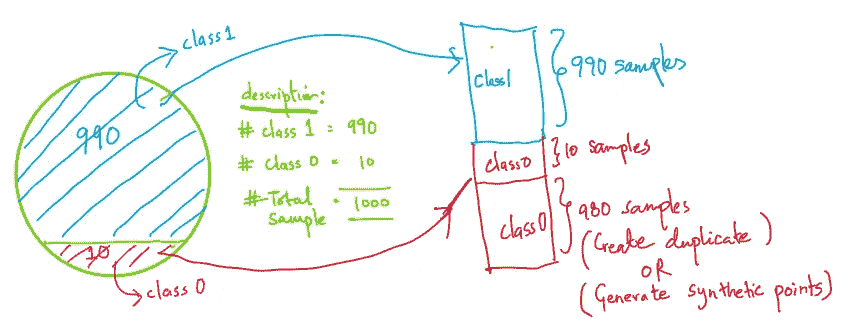 class 1
990
10
class 0
description:
# class 1 = 990
# class 0 = 10
# Total
sample = 1000
class1
990 samples
class0
10 samples
class0
980 samples
(Create duplicate)
OR
(Generate synthetic points)